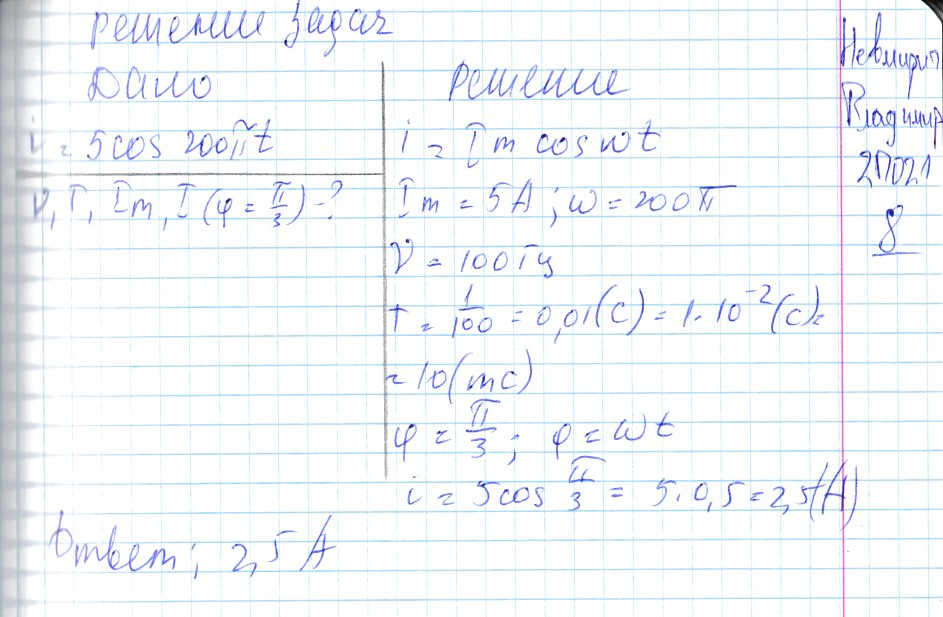 Решение задач
Дано
i = 5cos 200πt
ν, T, Im, I (φ = π/3) - ?
Решение
i = Im cos ωt
Im = 5A ; ω = 200π
ν = 100Гц
T = 1/100 = 0,01(с) = 1·10⁻²(с) =
= 10(mc)
φ = π/3 ; φ = ωt
i = 5cos π/3 = 5·0,5 = 2,5(A)
Ответ; 2,5 A
Владимир
2П021
8